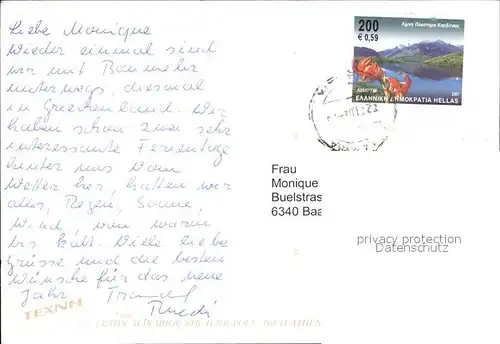 Liebe Monique
Wieder einmal sind
wir mit Baumeler
unterwegs, diesmal
in Griechenland. Wir
haben schon zwei sehr
interessante Ferientage
hinter uns. Vom
Wetter her, hatten wir
alles, Regen, Sonne,
Wind, von warm
bis kalt. Viele liebe
Grüsse und die besten
Wünsche für das neue
Jahr
Ruedi
TEXNH
200
€ 0,59
Λίμνη Πλαστήρα Καρδίτσας
ΕΛΛΗΝΙΚΗ ΔΗΜΟΚΡΑΤΙΑ HELLAS
2001
Frau
Monique
Buelstras
6340 Baa
privacy protection
Datenschutz